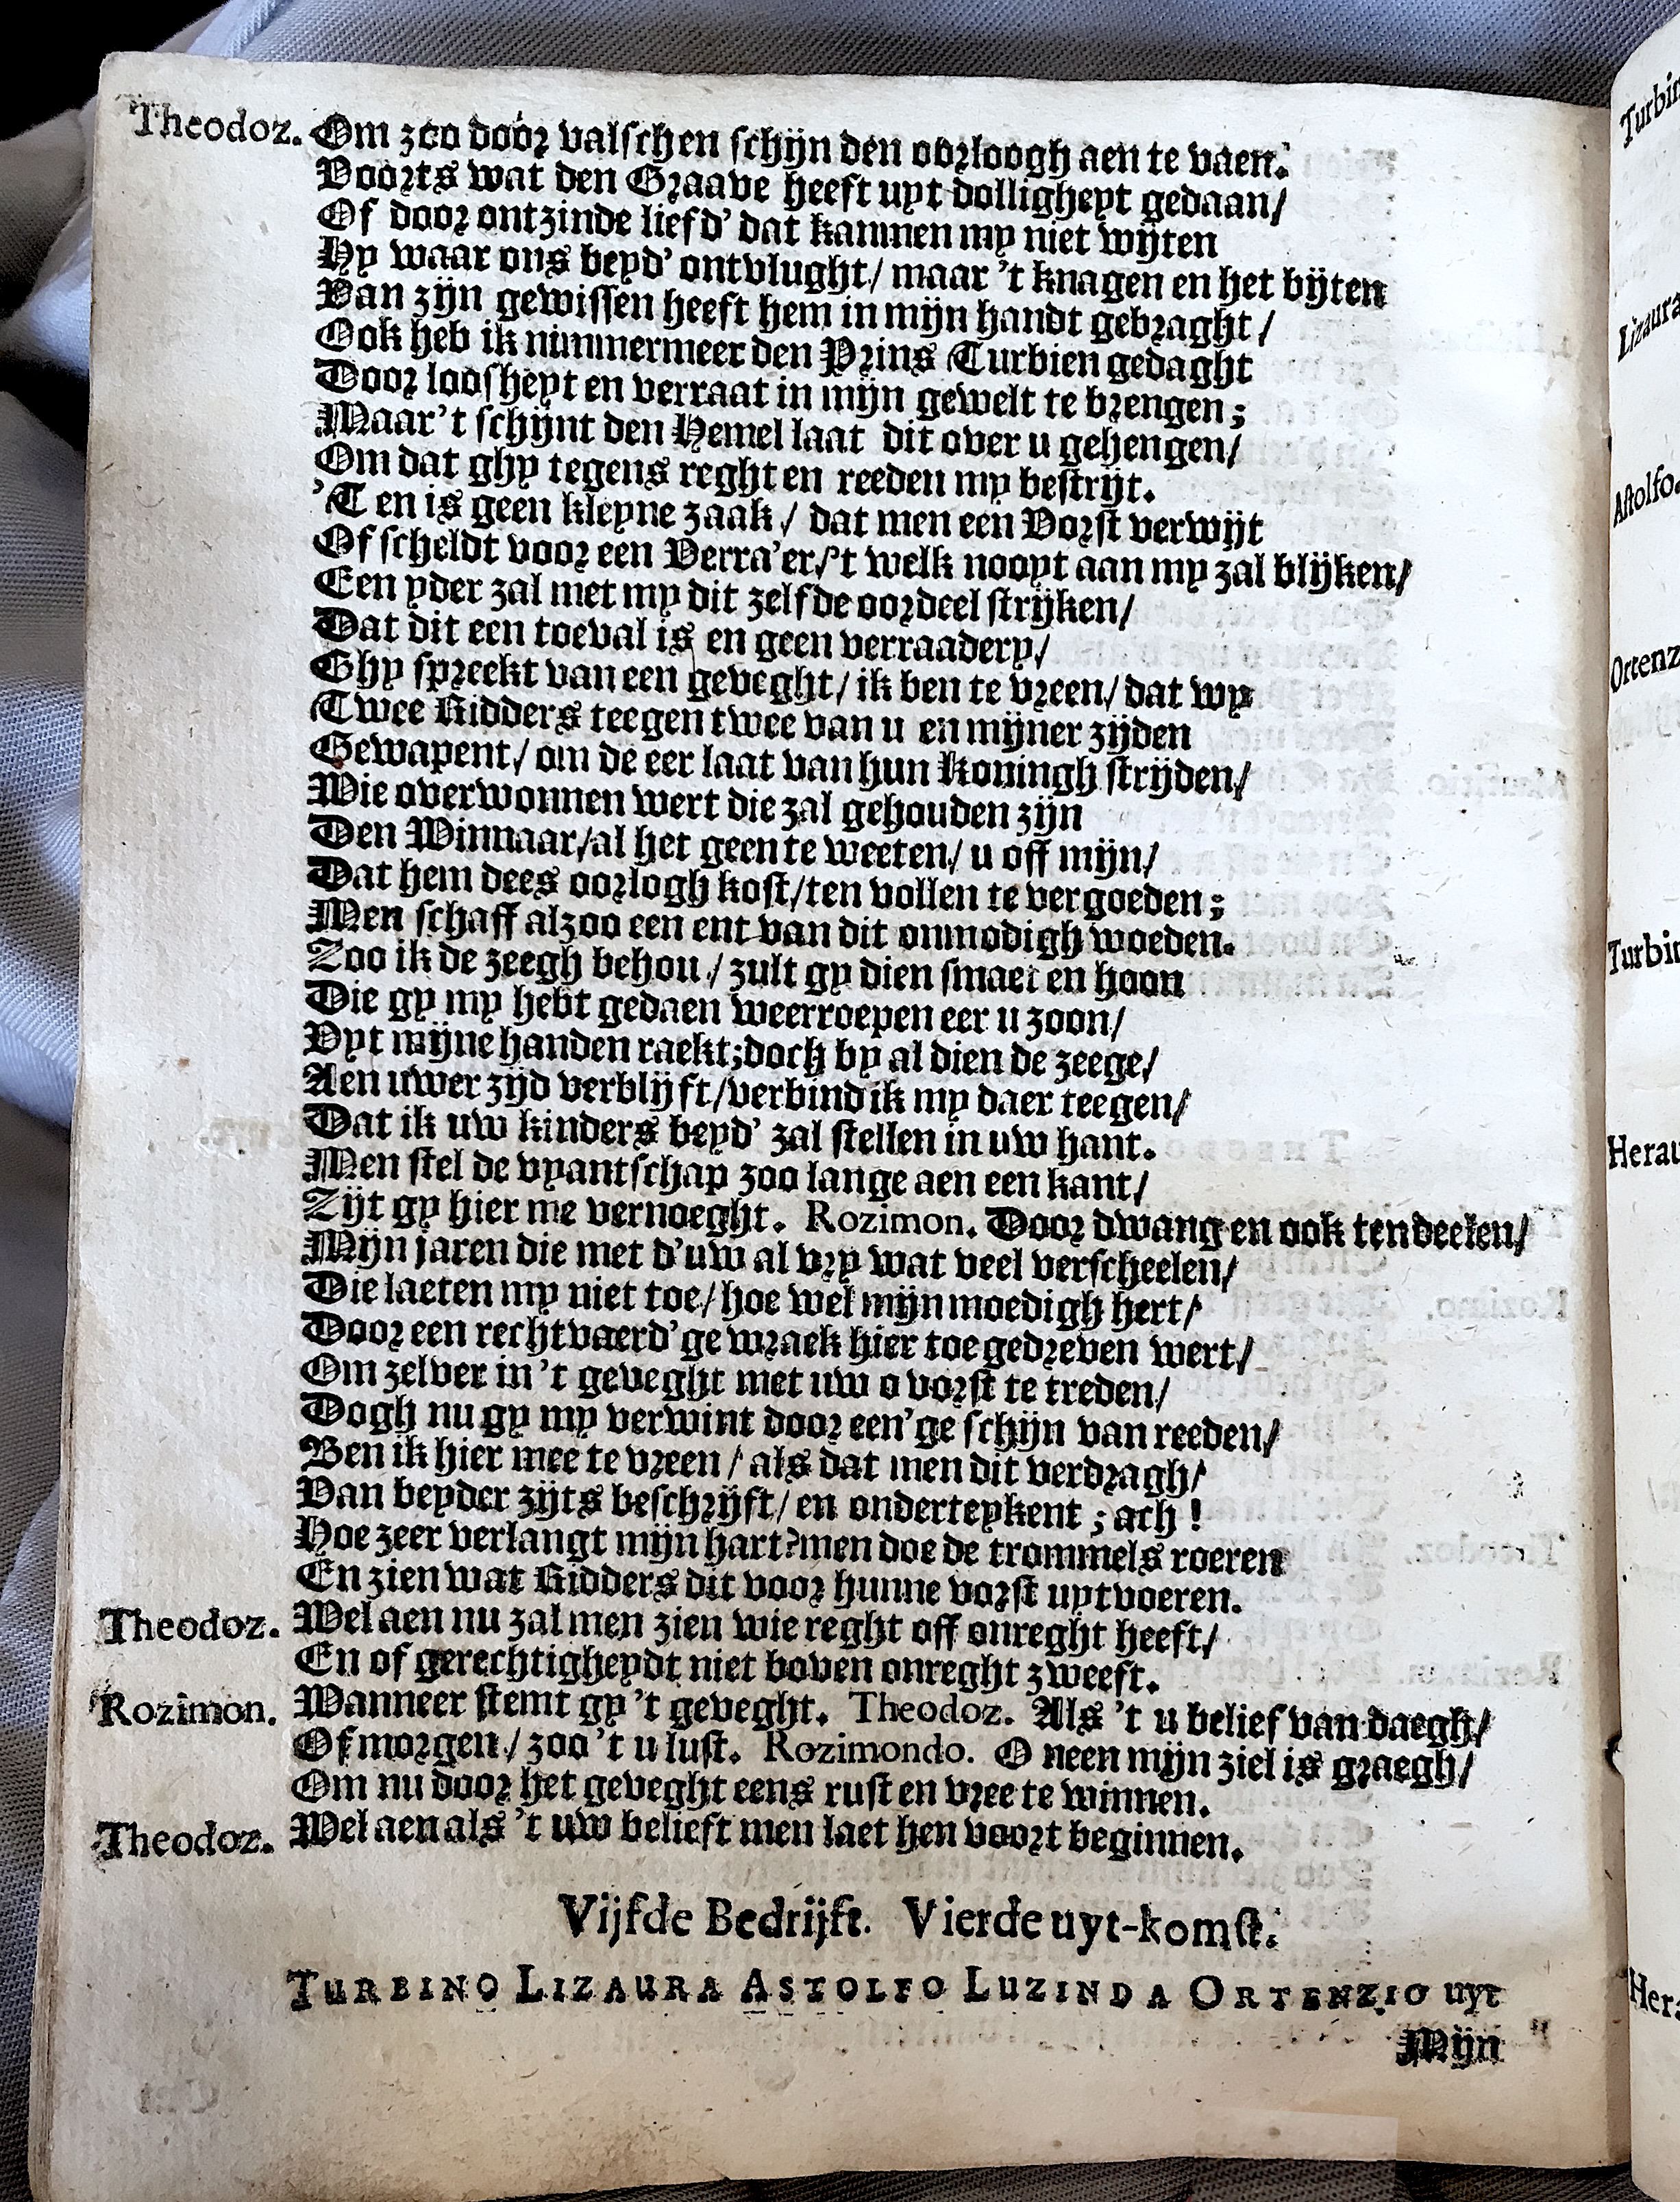 Theodoz. Om zoo door valschen schijn den oorloogh aen te vaen.
Voorts wat den Graave heeft uyt dolligheyt gedaan/
Of door ontzinde liefd' dat kannen my niet wijten
Hy waar ons beyd' ontvlught/ maar 't knagen en het bijten
Van zijn gewissen heeft hem in mijn handt gebraght/
Ook heb ik nimmermeer den Prins Turbien gedaght
Door loosheyt en verraat in mijn gewelt te brengen;
Maar 't schijnt den Hemel laat dit over u gehengen/
Om dat ghy tegens reght en reeden my bestrijt.
'T en is geen kleyne zaak/ dat men een Vorst verwijt
Of scheldt voor een Verra'er/'t welk nooyt aan my zal blijken/
Een yder zal met my dit zelfde oordeel strijken/
Dat dit een toeval is en geen verraadery/
Ghy spreekt van een geveght/ ik ben te vreen/ dat wy
Twee Ridders teegen twee van u en mijner zijden
Gewapent/ om de eer laat van hun Koningh strijden/
Wie overwonnen wert die zal gehouden zijn
Den Winnaar/al het geen te weeten/ u off mijn/
Dat hem dees oorlogh kost/ten vollen te vergoeden;
Men schaff alzoo een ent van dit onmodigh woeden.
Zoo ik de zeegh behou/ zult gy dien smaet en hoon
Die gy my hebt gedaen weerroepen eer u zoon/
Uyt mijne handen raekt;doch by al dien de zeege/
Aen uwer zijd verblijft/verbind ik my daer teegen/
Dat ik uw kinders beyd' zal stellen in uw hant.
Men stel de vyantschap zoo lange aen een kant/
Zijt gy hier me vernoeght. Rozimon. Door dwang en ook ten deelen/
Mijn jaren die met d'uw al vry wat veel verscheelen/
Die laeten my niet toe/ hoe wel mijn moedigh hert/
Door een rechtvaerd'ge wraek hier toe gedreven wert/
Om zelver in 't geveght met uw o vorst te treden/
Dogh nu gy my verwint door een'ge schijn van reeden/
Ben ik hier mee te vreen/ als dat men dit verdragh/
Van beyder zijts beschrijft/ en onderteykent; ach!
Hoe zeer verlangt mijn hart?men doe de trommels roeren
En zien wat Ridders dit voor hunne vorst uytvoeren.
Theodoz. Wel aen nu zal men zien wie reght off onreght heeft/
En of gerechtigheydt niet boven onreght zweeft.
Rozimon. Wanneer stemt gy 't geveght. Theodoz. Als 't u belief van daegh/
Of morgen/ zoo 't u lust. Rozimondo. O neen mijn ziel is graegh/
Om nu door het geveght eens rust en vree te winnen.
Theodoz. Wel aen als 't uw belieft men laet hen voort beginnen.
Vijfde Bedrijft. Vierde uyt-komst.
TURBINO LIZAURA ASTOLFO LUZINDA ORTENZIO uyt
Mijn
Turbin
Lizaura
Astolfo.
Ortenz
Turbin
Herau
Hera